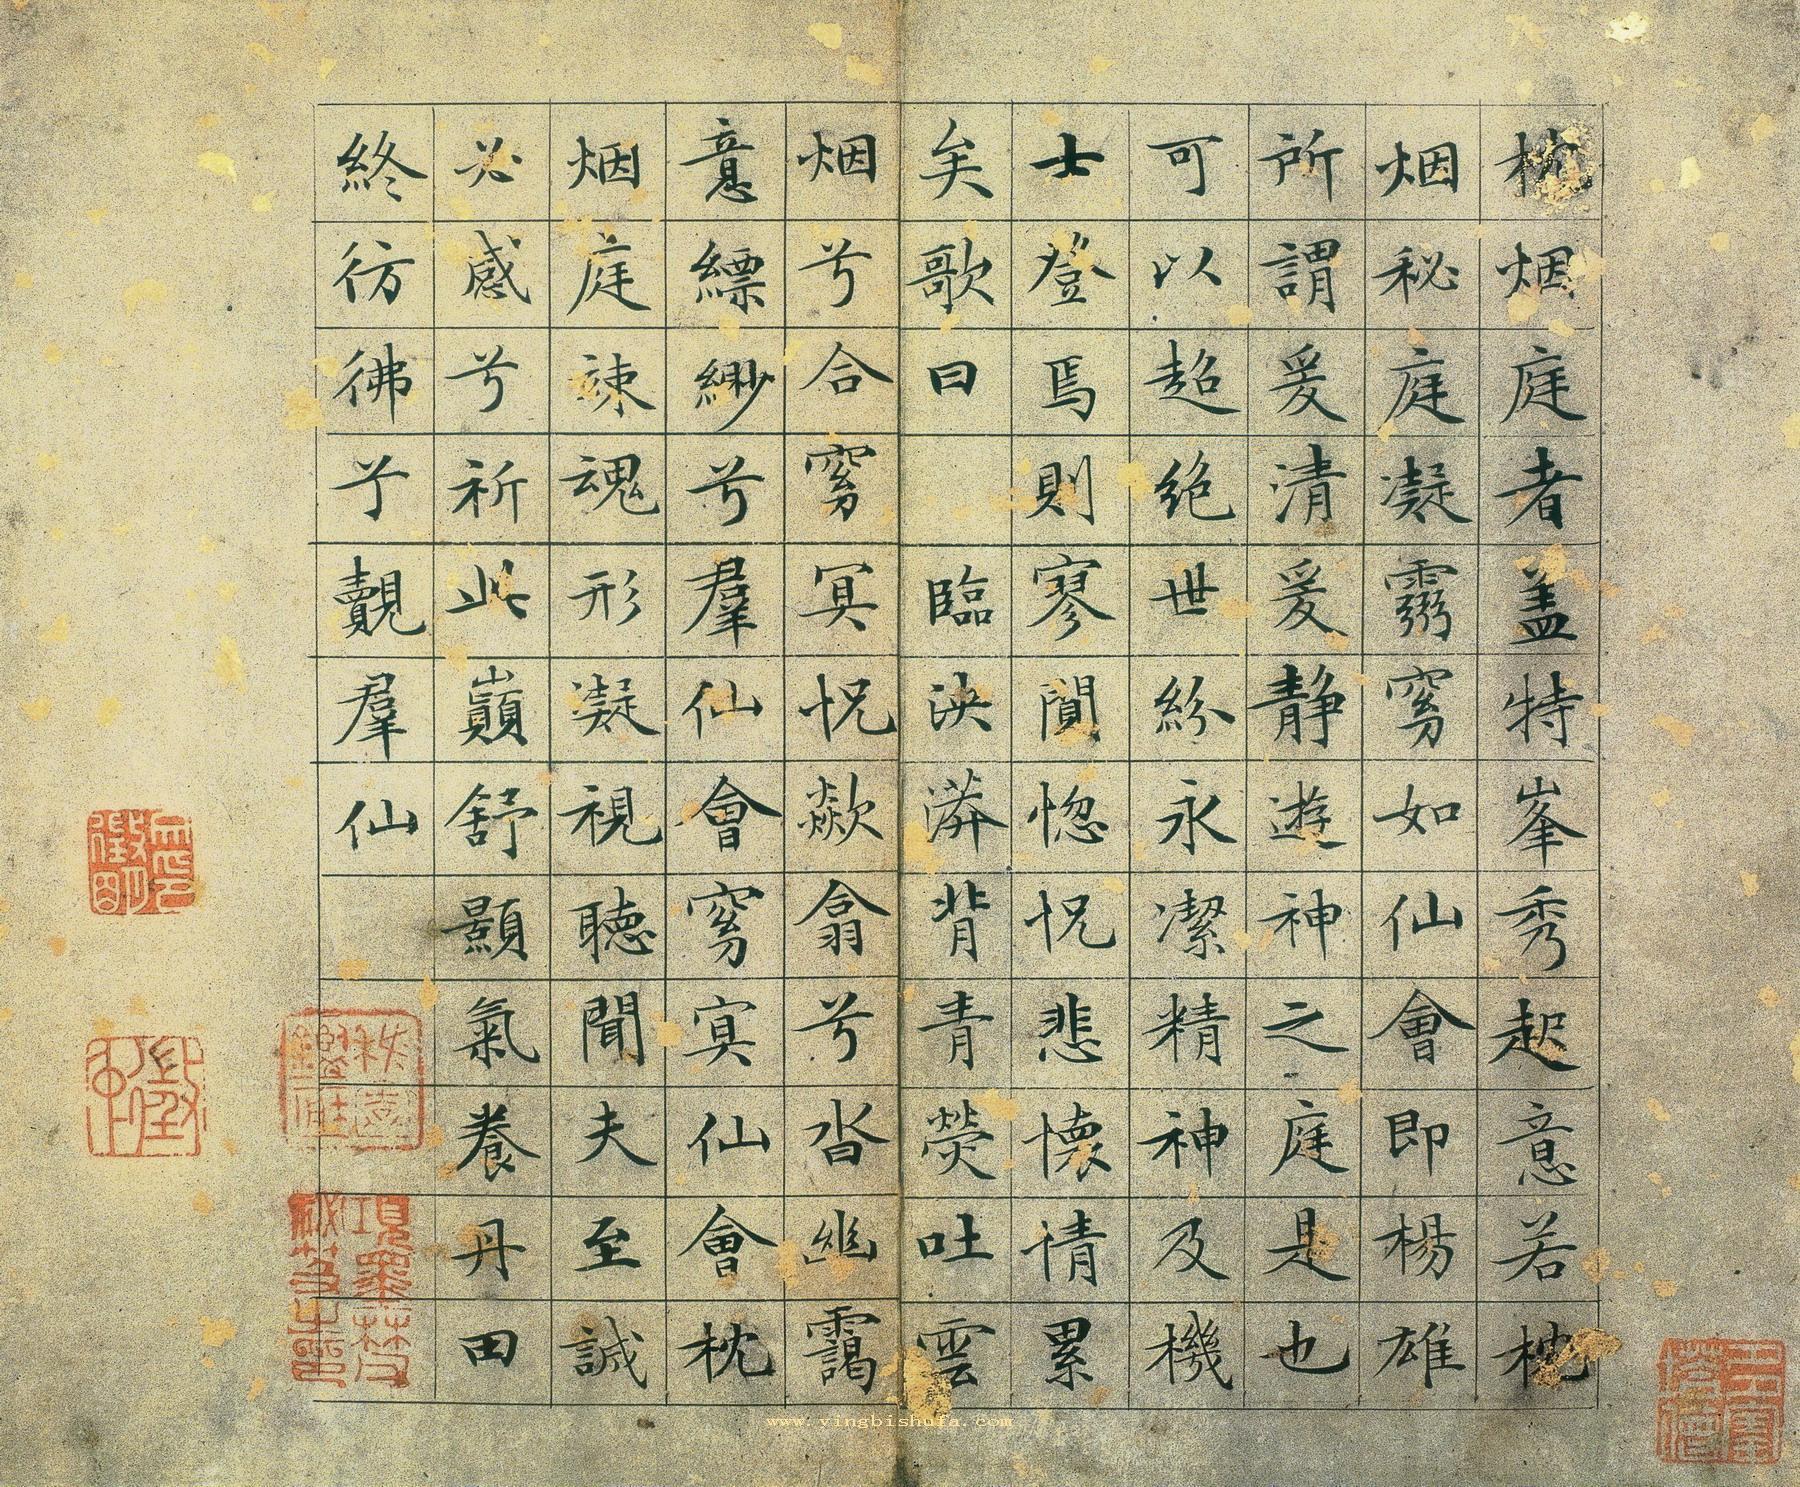 枕烟庭者盖特峯秀起意若枕
烟秘庭凝靈窅如仙會即楊雄
所謂爰清爰静遊神之庭是也
可以超絶世紛永潔精神及機
士登焉則寥閴惚怳悲懷情累
矣歌曰 臨泱漭背青熒吐雲
烟兮合窅冥怳歘翕兮沓幽靄
意縹緲兮羣仙會窅冥仙會枕
烟庭竦魂形凝視聽聞夫至誠
必感兮祈此巔舒顥氣養丹田
終彷彿兮覿羣仙
徵明
www.yingbishufa.com